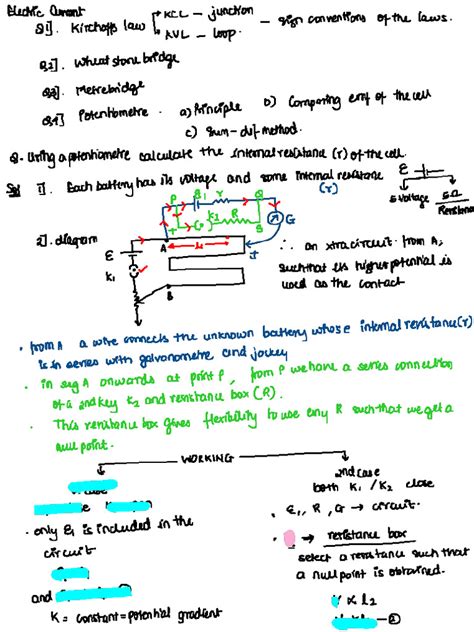 Electric Current
Q1]. Kirchoffs law KCL - junction
KVL - loop. - sign conventions of the laws.
Q2]. Wheatstone bridge
Q3]. Metrebridge
Q4] Potentiometre. a) Principle b) Comparing emf of the cell
c) Sum-diff method.
Q. Using a potentiometre calculate the internal resistance (r) of the cell.
Sol 1]. Each battery has its voltage and some internal resistance (r)
ε
voltage Resistance
2]. diagram
P ε1 r Q
k2 R S
G
A l1 J
ε
K1
B
∴ an xtra circuit from A,
such that its higher potential is
used as the contact
• from A a wire connects the unknown battery whose internal resistance (r)
is in series with galvanometre and jockey
• in seg A onwards at point P, from P we have a series connection
of a 2nd key K2 and resistance box (R).
• This resistance box gives flexibility to use any R such that we get a
null point.
WORKING
• only ε1 is included in the
circuit
and
K = constant = potential gradient
2nd case
both K1 / K2 close
• ε1, R, G → circuit.
• → resistance box
select a resistance such that
a null point is obtained.
∝ l2
— ②